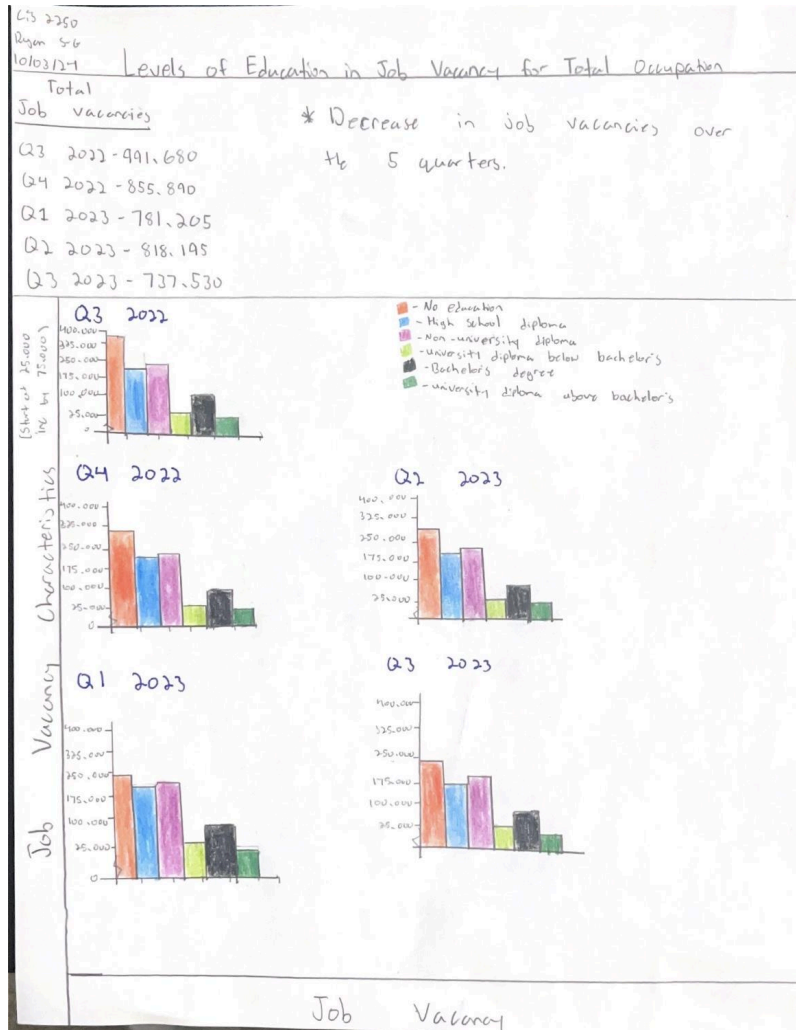 LIS 2250
Ryan
10/03/24
Levels of Education in Job Vacancy for Total Occupation
Total
Job vacancies
Q3 2022 - 991.680
Q4 2022 - 855.890
Q1 2023 - 781.205
Q2 2023 - 818.195
Q3 2023 - 737.530
* Decrease in job vacancies over
the 5 quarters.
[Start at 25.000
inc by 75.000]
Job Vacancy Characteristics
- No education
- High school diploma
- Non-university diploma
- university diploma below bachelor's
- Bachelor's degree
- university diploma above bachelor's
Q3 2022
400.000
325.000
250.000
175.000
100.000
25.000
0
Q4 2022
400.000
325.000
250.000
175.000
100.000
25.000
0
Q2 2023
400.000
325.000
250.000
175.000
100.000
25.000
Q1 2023
400.000
325.000
250.000
175.000
100.000
25.000
0
Q3 2023
400.000
325.000
250.000
175.000
100.000
25.000
Job Vacancy